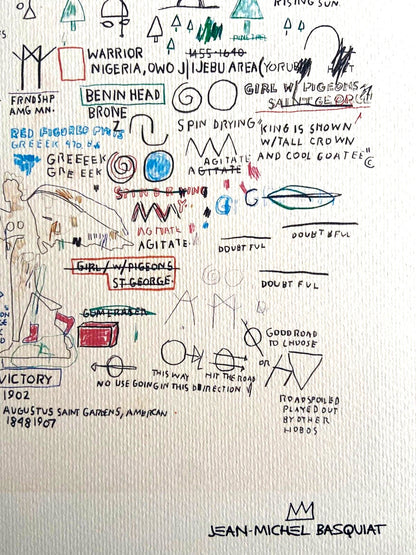 RISING SUN.
WARRIOR
1455-1640
NIGERIA, OWO J IJEBU AREA (YORUB
FRNDSHP
AMG MN.
BENIN HEAD
BRONE
GIRL W/ PIGEONS
SAINT GEORGE
RED FIGURED
GREEEK 470 B.
GREEEEK
GREEEK
SPIN DRYING"
"KING IS SHOWN
W/TALL CROWN
AND COOL GOATEE"
AGITATE
AGITATE
SPIN DRYING
AGITATE
AGITATE.
DOUBTFUL
DOUBTBFUL
DOUBTFUL
GIRL/W/PIGEONS
ST GEORGE.
A M
GOOD ROAD
TO CHOOSE
OR
THIS WAY
HIT THE ROAD
NO USE GOING IN THIS DIRECTION
ROAD SPOILED
PLAYED OUT
BY OTHER
HOBOS
VICTORY
1902
AUGUSTUS SAINT GARDENS, AMERICAN
1848 1907
JEAN-MICHEL BASQUIAT